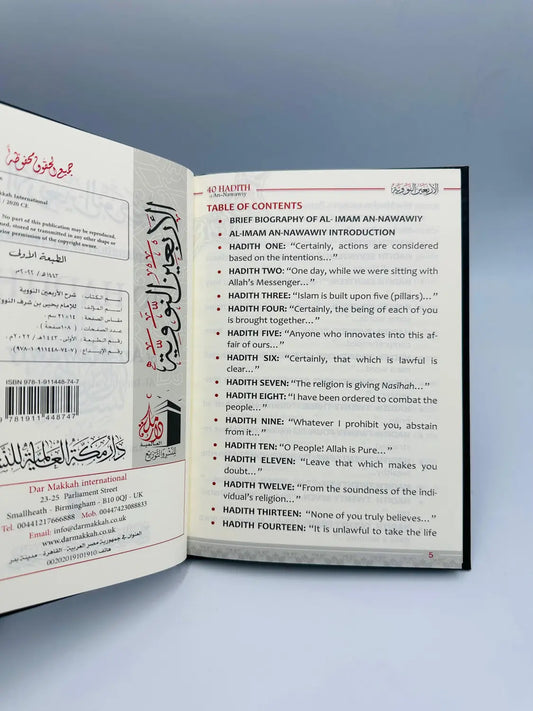 جميع الحقوق محفوظة
Makkah International
/ 2020 CE
No part of this publication may be reproduced,
stored, or transmitted in any other shape or
prior permission of the copyright owner.
الطبعة الأولى
١٤٤٣هـ / ٢٠٢٢م
اسم الكتاب: شرح الأربعين النووية
اسم المؤلف: للإمام يحيى بن شرف النووي
مقاس الصفحة: ١٤×٢١ سم
عدد الصفحات: (١٠٨ صفحة)
رقم الطبعة: الأولى، ١٤٤٣هـ / ٢٠٢٢م
رقم الإيداع: (٩٧٨-١-٩١١٤٤٨-٧٤-٧)
ISBN 978-1-911448-74-7
9 781911 448747
دار مكة العالمية للنشر
Dar Makkah international
23-25 Parliament Street
Smallheath - Birmingham - B10 0QJ - UK
Tel. 00441217666888 Mob. 00447423088833
Email: info@darmakkah.co.uk
www.darmakkah.co.uk
العنوان في جمهورية مصر العربية - القاهرة - مدينة بدر
هاتف 00202019101910
الأربعين النووية
دار مكة
العالمية
للنشر والتوزيع
40 HADITH
An-Nawawiy
الأربعين النووية
TABLE OF CONTENTS
• BRIEF BIOGRAPHY OF AL- IMAM AN-NAWAWIY
• AL-IMAM AN-NAWAWIY INTRODUCTION
• HADITH ONE: “Certainly, actions are considered
based on the intentions...”
• HADITH TWO: “One day, while we were sitting with
Allah’s Messenger...”
• HADITH THREE: “Islam is built upon five (pillars)...”
• HADITH FOUR: “Certainly, the being of each of you
is brought together...”
• HADITH FIVE: “Anyone who innovates into this af-
fair of ours...”
• HADITH SIX: “Certainly, that which is lawful is
clear...”
• HADITH SEVEN: “The religion is giving Nasihah...”
• HADITH EIGHT: “I have been ordered to combat the
people...”
• HADITH NINE: “Whatever I prohibit you, abstain
from it...”
• HADITH TEN: “O People! Allah is Pure...”
• HADITH ELEVEN: “Leave that which makes you
doubt...”
• HADITH TWELVE: “From the soundness of the indi-
vidual’s religion...”
• HADITH THIRTEEN: “None of you truly believes...”
• HADITH FOURTEEN: “It is unlawful to take the life
5